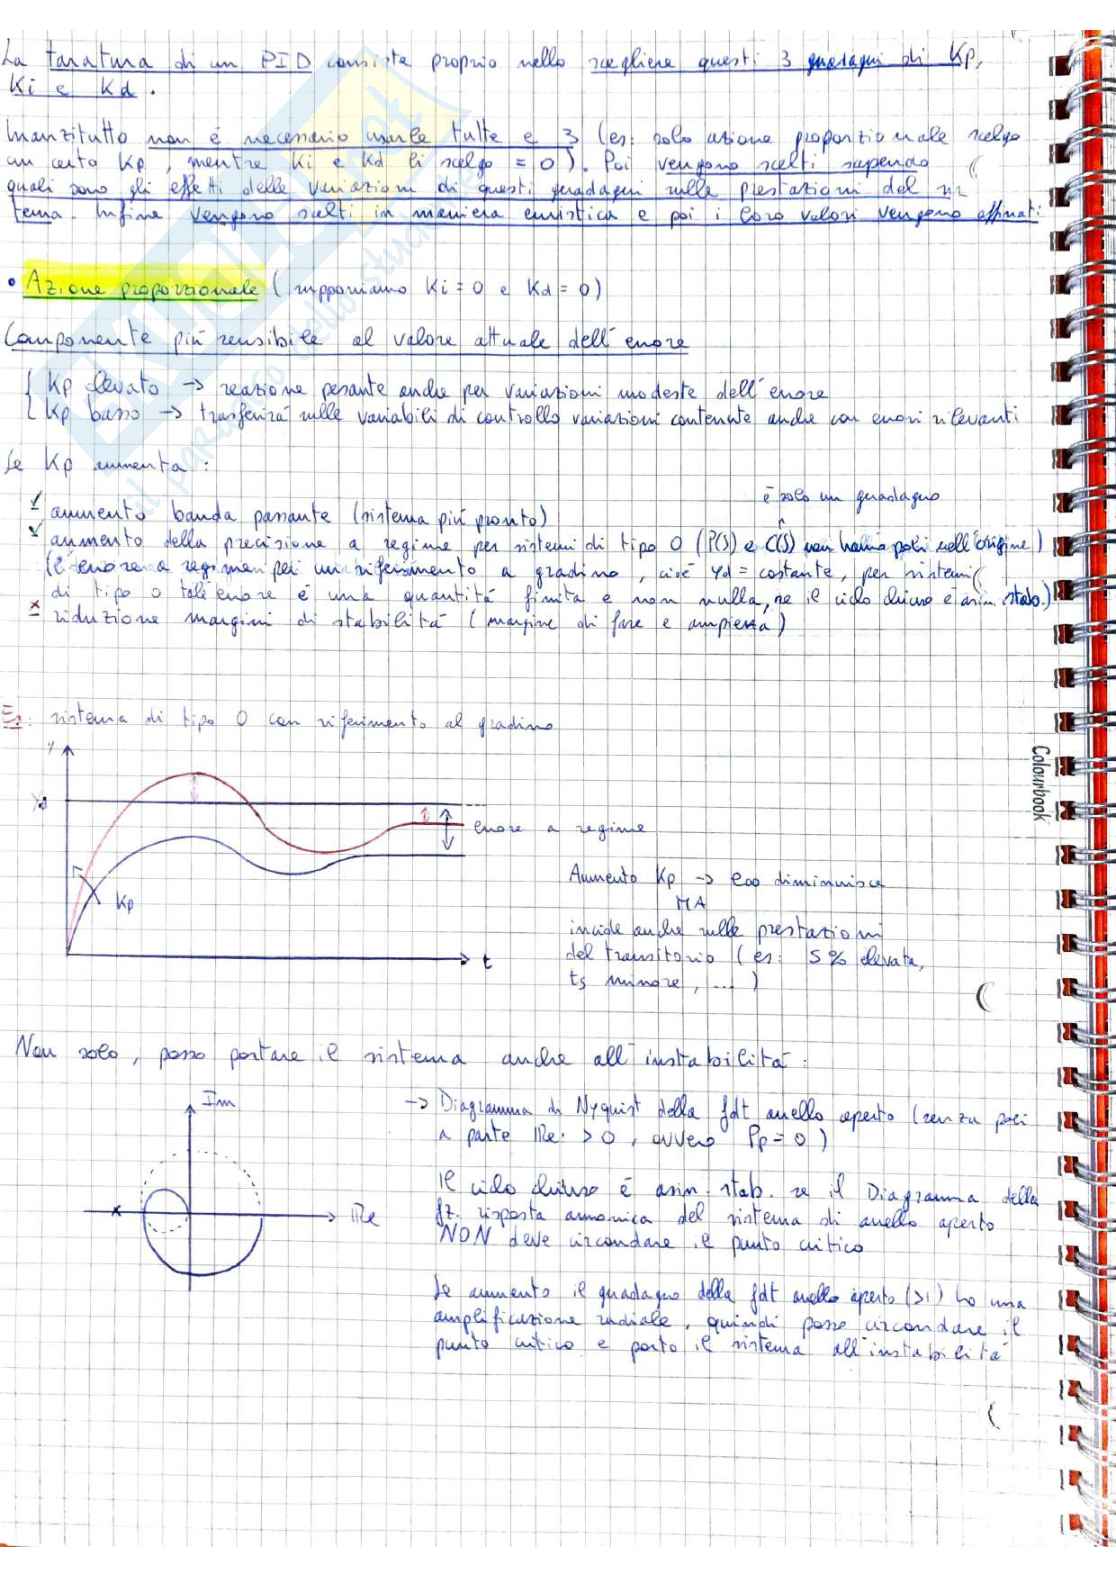 La taratura di un PID consiste proprio nello scegliere questi 3 guadagni di Kp,
Ki e Kd.
Innanzitutto non è necessario usarle tutte e 3 (es: solo azione proporzionale scelgo
un certo Kp, mentre Ki e Kd li scelgo = 0). Poi vengono scelti sapendo
quali sono gli effetti delle variazioni di questi guadagni sulle prestazioni del sis
tema. Infine vengono scelti in maniera euristica e poi i loro valori vengono affinati
• Azione proporzionale (supponiamo Ki = 0 e Kd = 0)
Componente più sensibile al valore attuale dell'errore
Kp elevato -> reazione pesante anche per variazioni modeste dell'errore
Kp basso -> trasferirà sulle variabili di controllo variazioni contenute anche con errori rilevanti
Se Kp aumenta:
è solo un guadagno
✓ aumento banda passante (sistema più pronto)
✓ aumento della precisione a regime per sistemi di tipo 0 (P(S) e C(S) non hanno poli nell'origine)
(l'errore a regime per un riferimento a gradino, cioè yd = costante, per sistemi
di tipo 0 tale errore è una quantità finita e non nulla, se il ciclo chiuso è asin. stab.)
x riduzione margini di stabilità (margine di fase e ampiezza)
Es: sistema di tipo 0 con riferimento al gradino
y
yd
errore a regime
Kp
t
Aumento Kp -> e∞ diminuisce
MA
incide anche sulle prestazioni
del transitorio (es: S% elevata,
ts minore, ...)
Non solo, posso portare il sistema anche all'instabilità:
Im
Re
-> Diagramma di Nyquist della fdt anello aperto (senza poli
a parte Re. > 0, ovvero Pp = 0)
Il ciclo chiuso è asin. stab. se il Diagramma della
fz. risposta armonica del sistema di anello aperto
NON deve circondare il punto critico
Se aumento il guadagno della fdt anello aperto (>1) ho una
amplificazione radiale, quindi posso circondare il
punto critico e porto il sistema all'instabilità
Colourbook